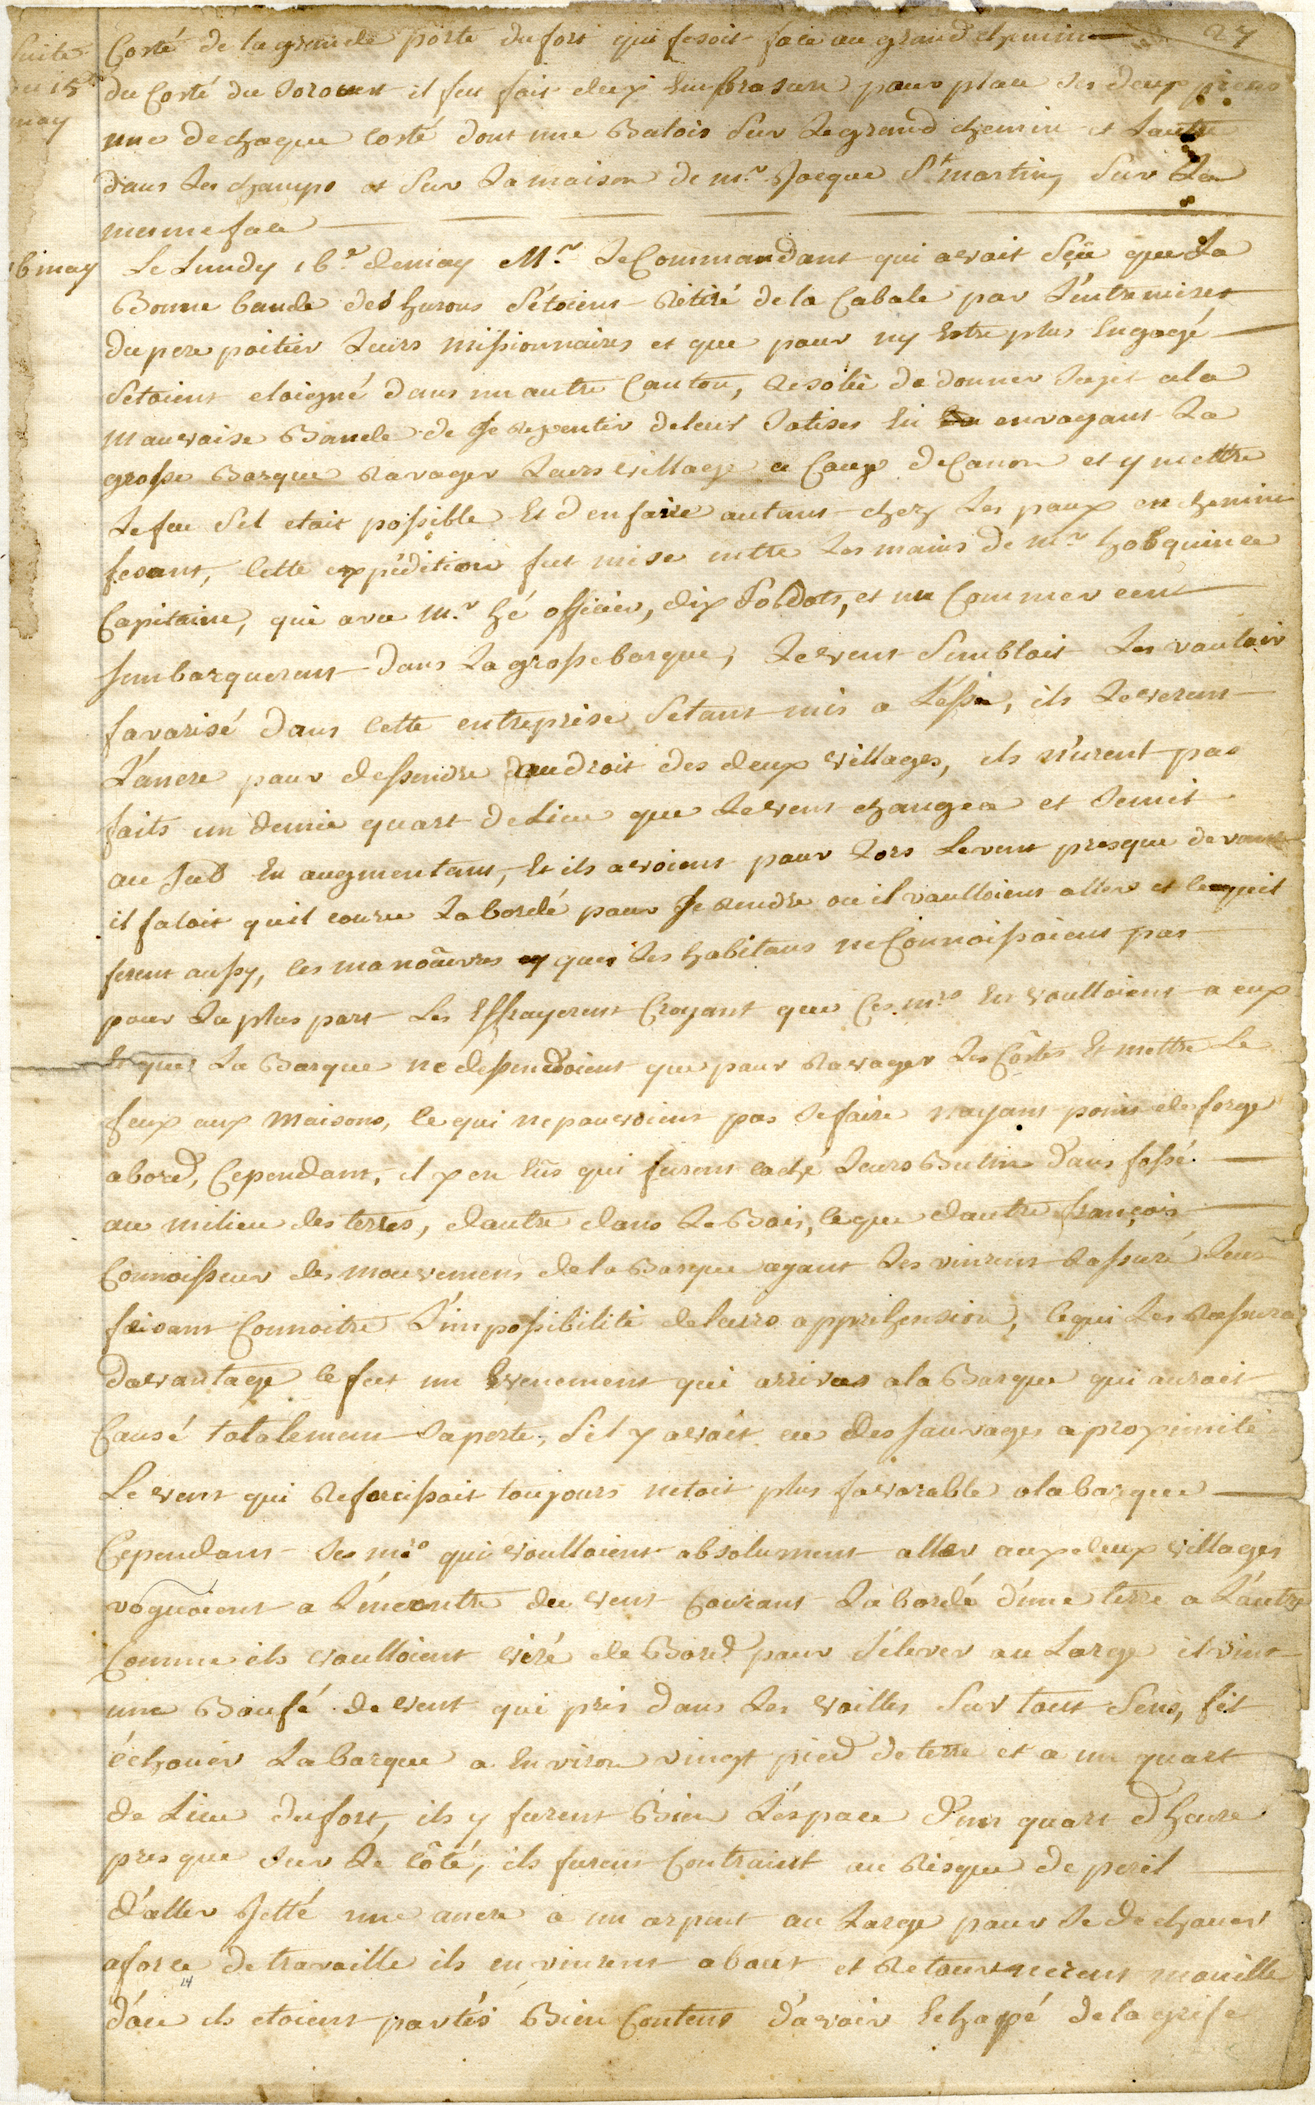 27
Suite Costé de la grande porte du fort qui fesoit face au grand chemin
du 15 du Costé du Sorouest il fut fait deux Embrasure pour place les deux pieces
may une de chaque Costé dont une Batois Sur Le grand chemin et Lautre
dans Les champs et Sur La maison de mr. Jacque St. martin, Sur La
mesme face
16 may Le Lundy 16e. de may Mr. Le Commandant qui avait Sçü que La
Bonne bande des hurons S'étoient Rétiré de la Cabale par L'entremises
du pere poitier Leurs missionnaires et que pour ny Estre plus Engagé
Setoient eloigné dans un autre Canton, Resolu de donner Sujet a la
mauvaise Bande de Se repentir de leurs Sotises En envoyant La
grosse Barque Ravager Leurs village a Coup de Canon et y mettre
Le feu S'il etait possible Et d'en faire autant chez Les poux en chemin
fesant, Cette expédition fut mise entre Les mains de mr. hobquince
Capitaine, qui avec Mr. hé officier, dix Soldats, et un Commercent
Sembarquerent dans La grosse barque, Le vent Semblait Les vouloir
favorisé dans Cette entreprise S'etant mis a L'est, ils Leverent
L'ancre pour dessendre audroit des deux villages, ils n'urent pas
faits un demie quart de Lieu que Le vent changea et Semit
au Sud En augmentant, Et ils avoient pour Lors Levent presque devant
il faloit quil courre La bordé pour Se rendre ou il voulloient aller et Ce quil
firent aussy, Ces manoeuvres que Les habitans ne Connoissoient pas
pour La plus part Les Effrayerent Croyant que Ces mrs En voulloient a eux
Et que La Barque ne dessendoient que pour Ravager Les Côtes Et mettre Le
feux aux Maisons, Ce qui ne pouvoient pas Se faire nayant point de forge
abord, Cependant, il y en Eûs qui furent caché Leurs Butin dans fossé
au milieu des terres, dautre dans Le Bois, Ceque dautre françois
Connoisseur des mouvemens de la Barque ayant Les vinrent Rassuré Leurs
faisant Connoitre L'impossibilité de leurs apprehension, Cequi Les Rassura
davantage Ce fut un Evenement qui arriva a la Barque qui auroit
Causé totalement Sa perte, S'il y avoit eu des Sauvages a proximité
Le vent qui Reforcissait toujours netoit plus favorable a la barque
Cependant Ses mrs qui voulloient absolument aller aux deux villages
voguoient a L'encontre du vent Courant La bordé d'une terre a L'autre
Comme ils voulloient viré de Bord pour S'élever au Large il vint
une Boufé de vent qui pris dans Les voilles Sur tout Sens, fit
échouer La barque a Environ vingt pied de terre et a un quart
de Lieu du fort, ils y furent Bien L'éspace d'un quart d'heure
presque Sur Le Côté, ils furent Contraint au Risque de peril
d'aller Jetté une ancre a un arpent au Large pour Se dechouer
a force de travaille ils en vinrent about et Retournerent mouille
14
d'ou ils etoient partés Bien Contens d'avoir Echapé de la grife